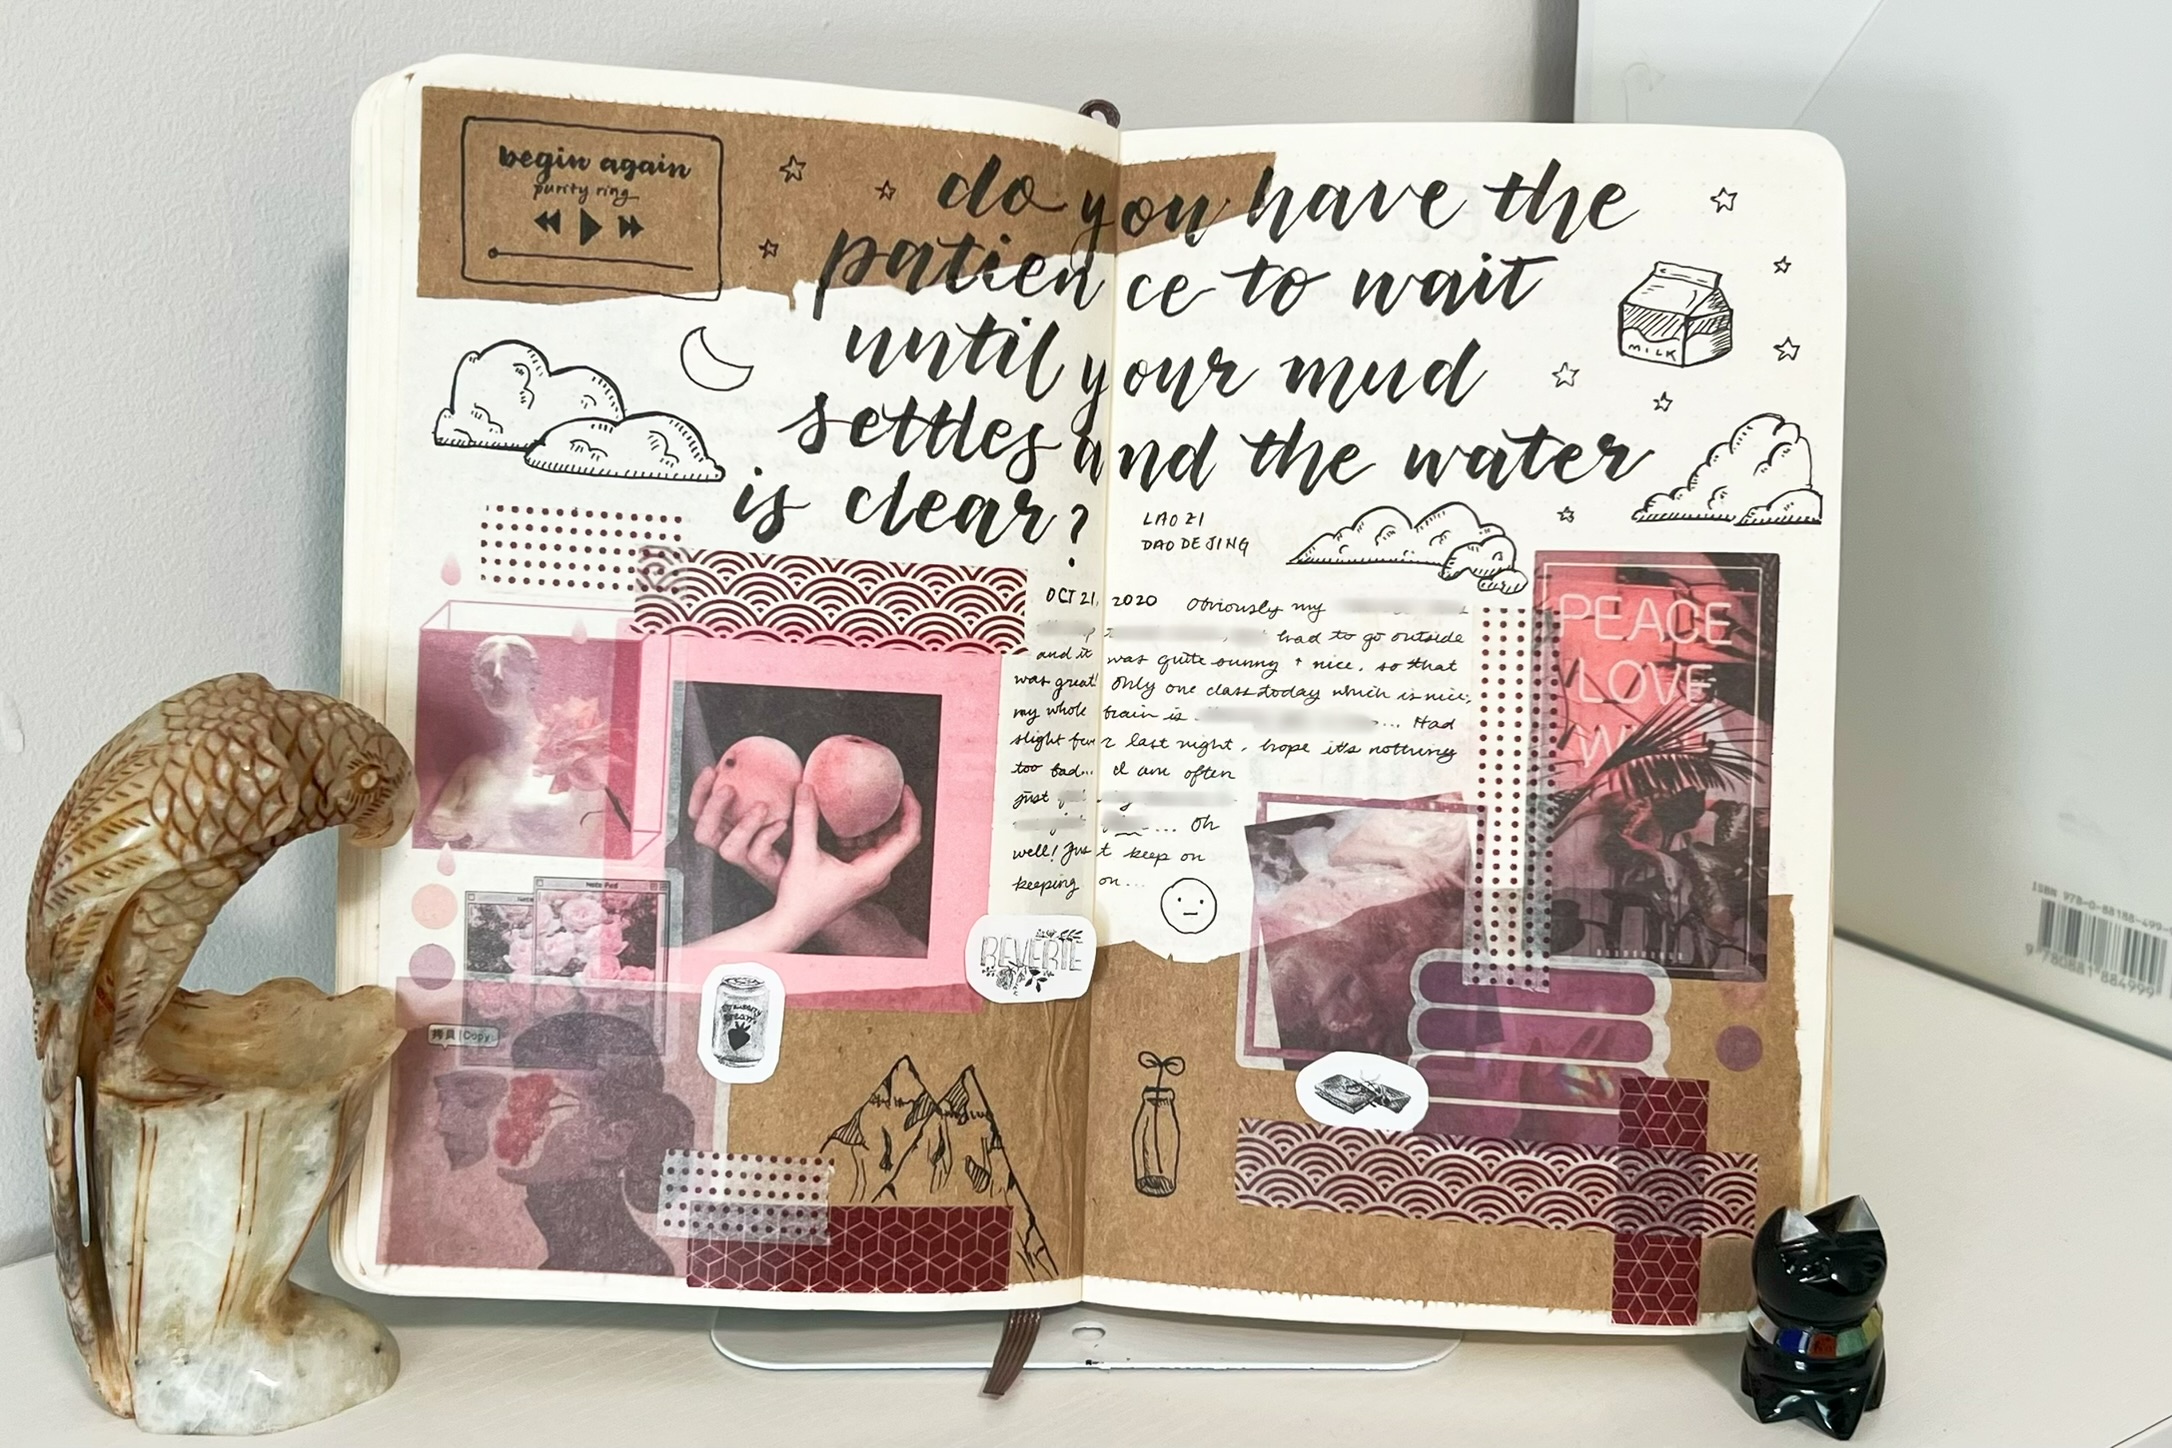 begin again
purity ring
do you have the
patience to wait
until your mud
settles and the water
is clear?
MILK
LAO ZI
DAO DE JING
OCT 21, 2020 Obviously my
had to go outside
and it was quite sunny + nice, so that
was great! Only one class today which is nice;
my whole brain is ... Had
slight fever last night, hope it's nothing
too bad... I am often
just
... Oh
well! Just keep on
keeping on...
PEACE
LOVE
Note Pad
REVERIE
拷貝 Copy
ISBN 978-0-88188-499-
9 780881 884999